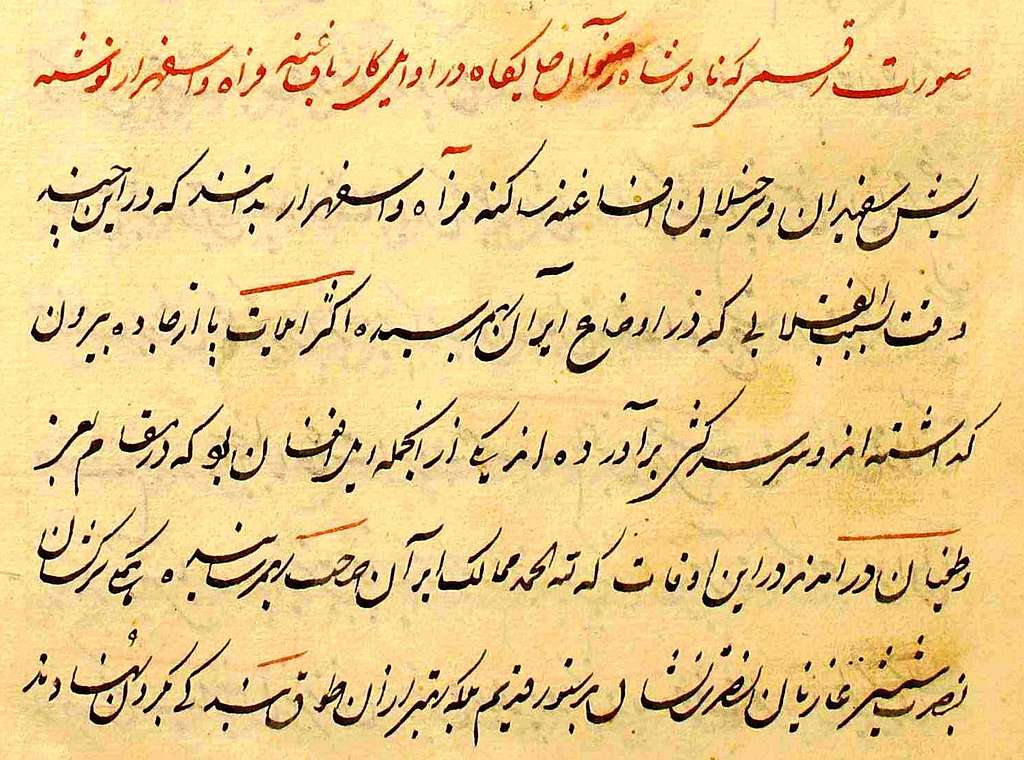 صورت رقمی که نادر شاه رضوان جایگاه در اوایل کار بافاغنه فراه و اسفزار نوشته
ریش سفیدان و سرخیلان افاغنه ساکنه فراه و اسفزار بدانند که در این چند
وقت بسبب انقلابی که در اوضاع ایران بهم رسیده اکثر ایلات پا از جاده بیرون
گذاشته اند و سر سرکشی برآورده اند یکی از آنجمله ایل افغان بود که در مقام تمرد
و طغیان در آمدند در این اوقات که لله الحمد ممالک ایران صاحب بهم رسانیده یکی سرکشان
بضرب شمشیر غازیان نصرت نشان بدستور قدیم بلکه بدتر از آن طوق بندگی بگردن نهادند